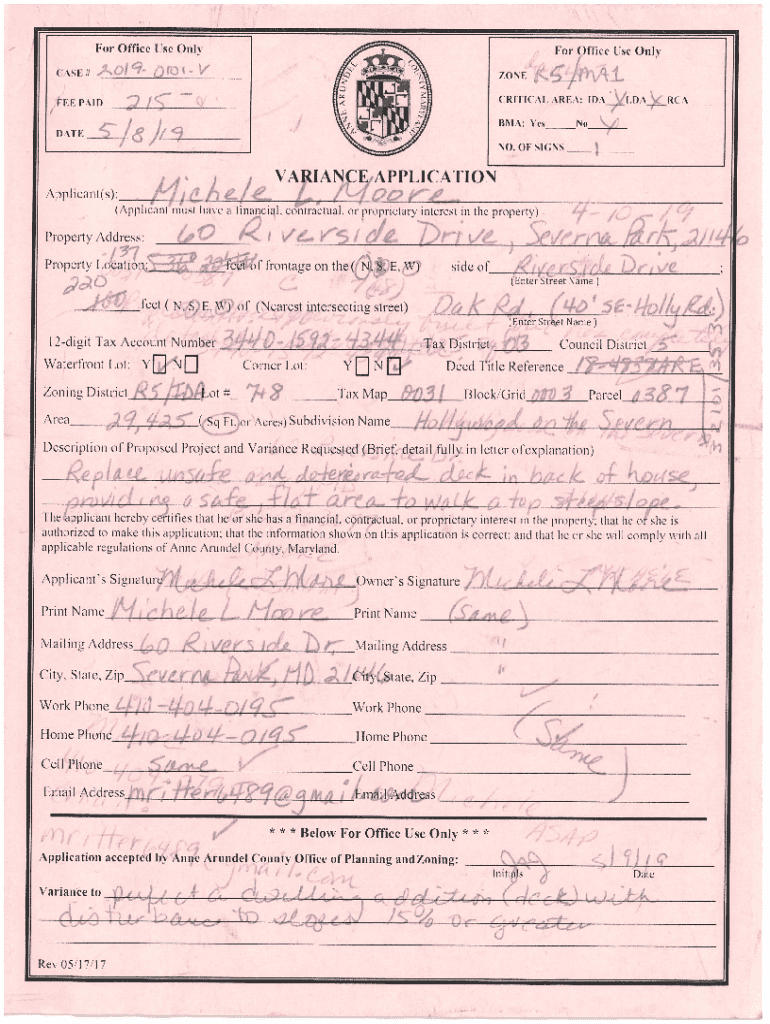 For Office Use Only
CASE # 2019-0101-V
FEE PAID 215-
DATE 5/8/19
ANNE ARUNDEL COUNTY, MARYLAND
For Office Use Only
ZONE R5/
CRITICAL AREA: IDA X LDA X RCA
BMA: Yes No
NO. OF SIGNS 1
VARIANCE APPLICATION
Applicant(s): Michele L. Moore
(Applicant must have a financial, contractual, or proprietary interest in the property) 4-10-19
Property Address: 60 Riverside Drive, Severna Park, 21146
Property Location: 137 feet of frontage on the (N, S, E, W) side of Riverside Drive ;
(Enter Street Name)
220 100 feet (N, S, E, W) of (Nearest intersecting street) Oak Rd. (40' SE-Holly Rd.)
(Enter Street Name)
12-digit Tax Account Number 3440-1592-4344 Tax District 03 Council District 5
Waterfront Lot: Y N Corner Lot: Y N Deed Title Reference
Zoning District R5/IDA Lot # 7+8 Tax Map 0031 Block/Grid 0003 Parcel 0387
Area 29,425 (Sq Ft. or Acres) Subdivision Name Hollywood on the Severn
Description of Proposed Project and Variance Requested (Brief, detail fully in letter of explanation)
Replace unsafe and deteriorated deck in back of house,
providing a safe, flat area to walk atop steep slope.
The applicant hereby certifies that he or she has a financial, contractual, or proprietary interest in the property; that he or she is
authorized to make this application; that the information shown on this application is correct; and that he or she will comply with all
applicable regulations of Anne Arundel County, Maryland.
Applicant's Signature Michele L Moore Owner's Signature Michele L Moore
Print Name Michele L Moore Print Name (Same)
Mailing Address 60 Riverside Dr. Mailing Address "
City, State, Zip Severna Park, MD 21146 City, State, Zip "
Work Phone 410-404-0195 Work Phone
Home Phone 410-404-0195 Home Phone (Same)
Cell Phone same Cell Phone
Email Address mritter6489@gmail.com Email Address
* * * Below For Office Use Only * * *
mritter6489@gmail.com
ASAP
Application accepted by Anne Arundel County Office of Planning and Zoning: 5/9/19
Initials Date
Variance to perfect a dwelling addition (deck) with
disturbance to slopes 15% or greater
Rev 05/17/17